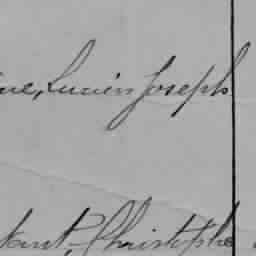 ue, Lucien Joseph
tant, Christophe